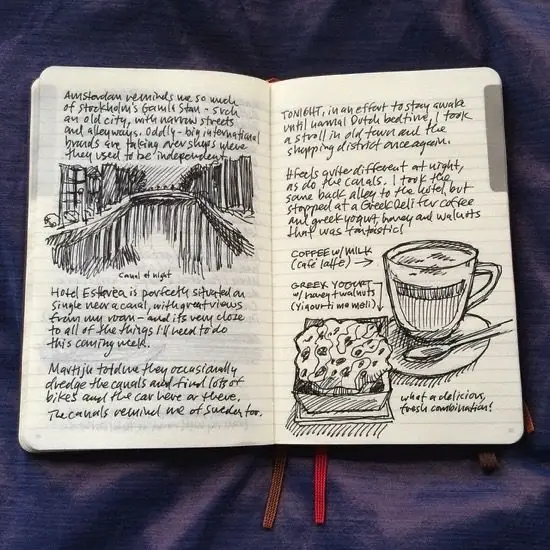 Amsterdam reminds me so much
of Stockholm's Gamla Stan - such
an old city, with narrow streets
and alleyways. Oddly - big international
brands are taking over shops where
they used to be independent.
Canal at night
Hotel Estherea is perfectly situated on
Single near a canal, with great views
from my room - and its very close
to all of the things I'll need to do
this coming week.
Martijn told me they occasionally
dredge the canals and find lots of
bikes and the car here or there.
The canals remind me of Sweden too.
TONIGHT, in an effort to stay awake
until normal Dutch bedtime, I took
a stroll in old town and the
shopping district once again.
It feels quite different at night,
as do the canals. I took the
same back alley to the hotel, but
stopped at a Greek Deli for coffee
and greek yogurt, honey and walnuts
that was fantastic!
COFFEE w/ MILK
(café latte)
GREEK YOGURT
w/ honey + walnuts
(yiaourti me meli)
what a delicious,
fresh combination!